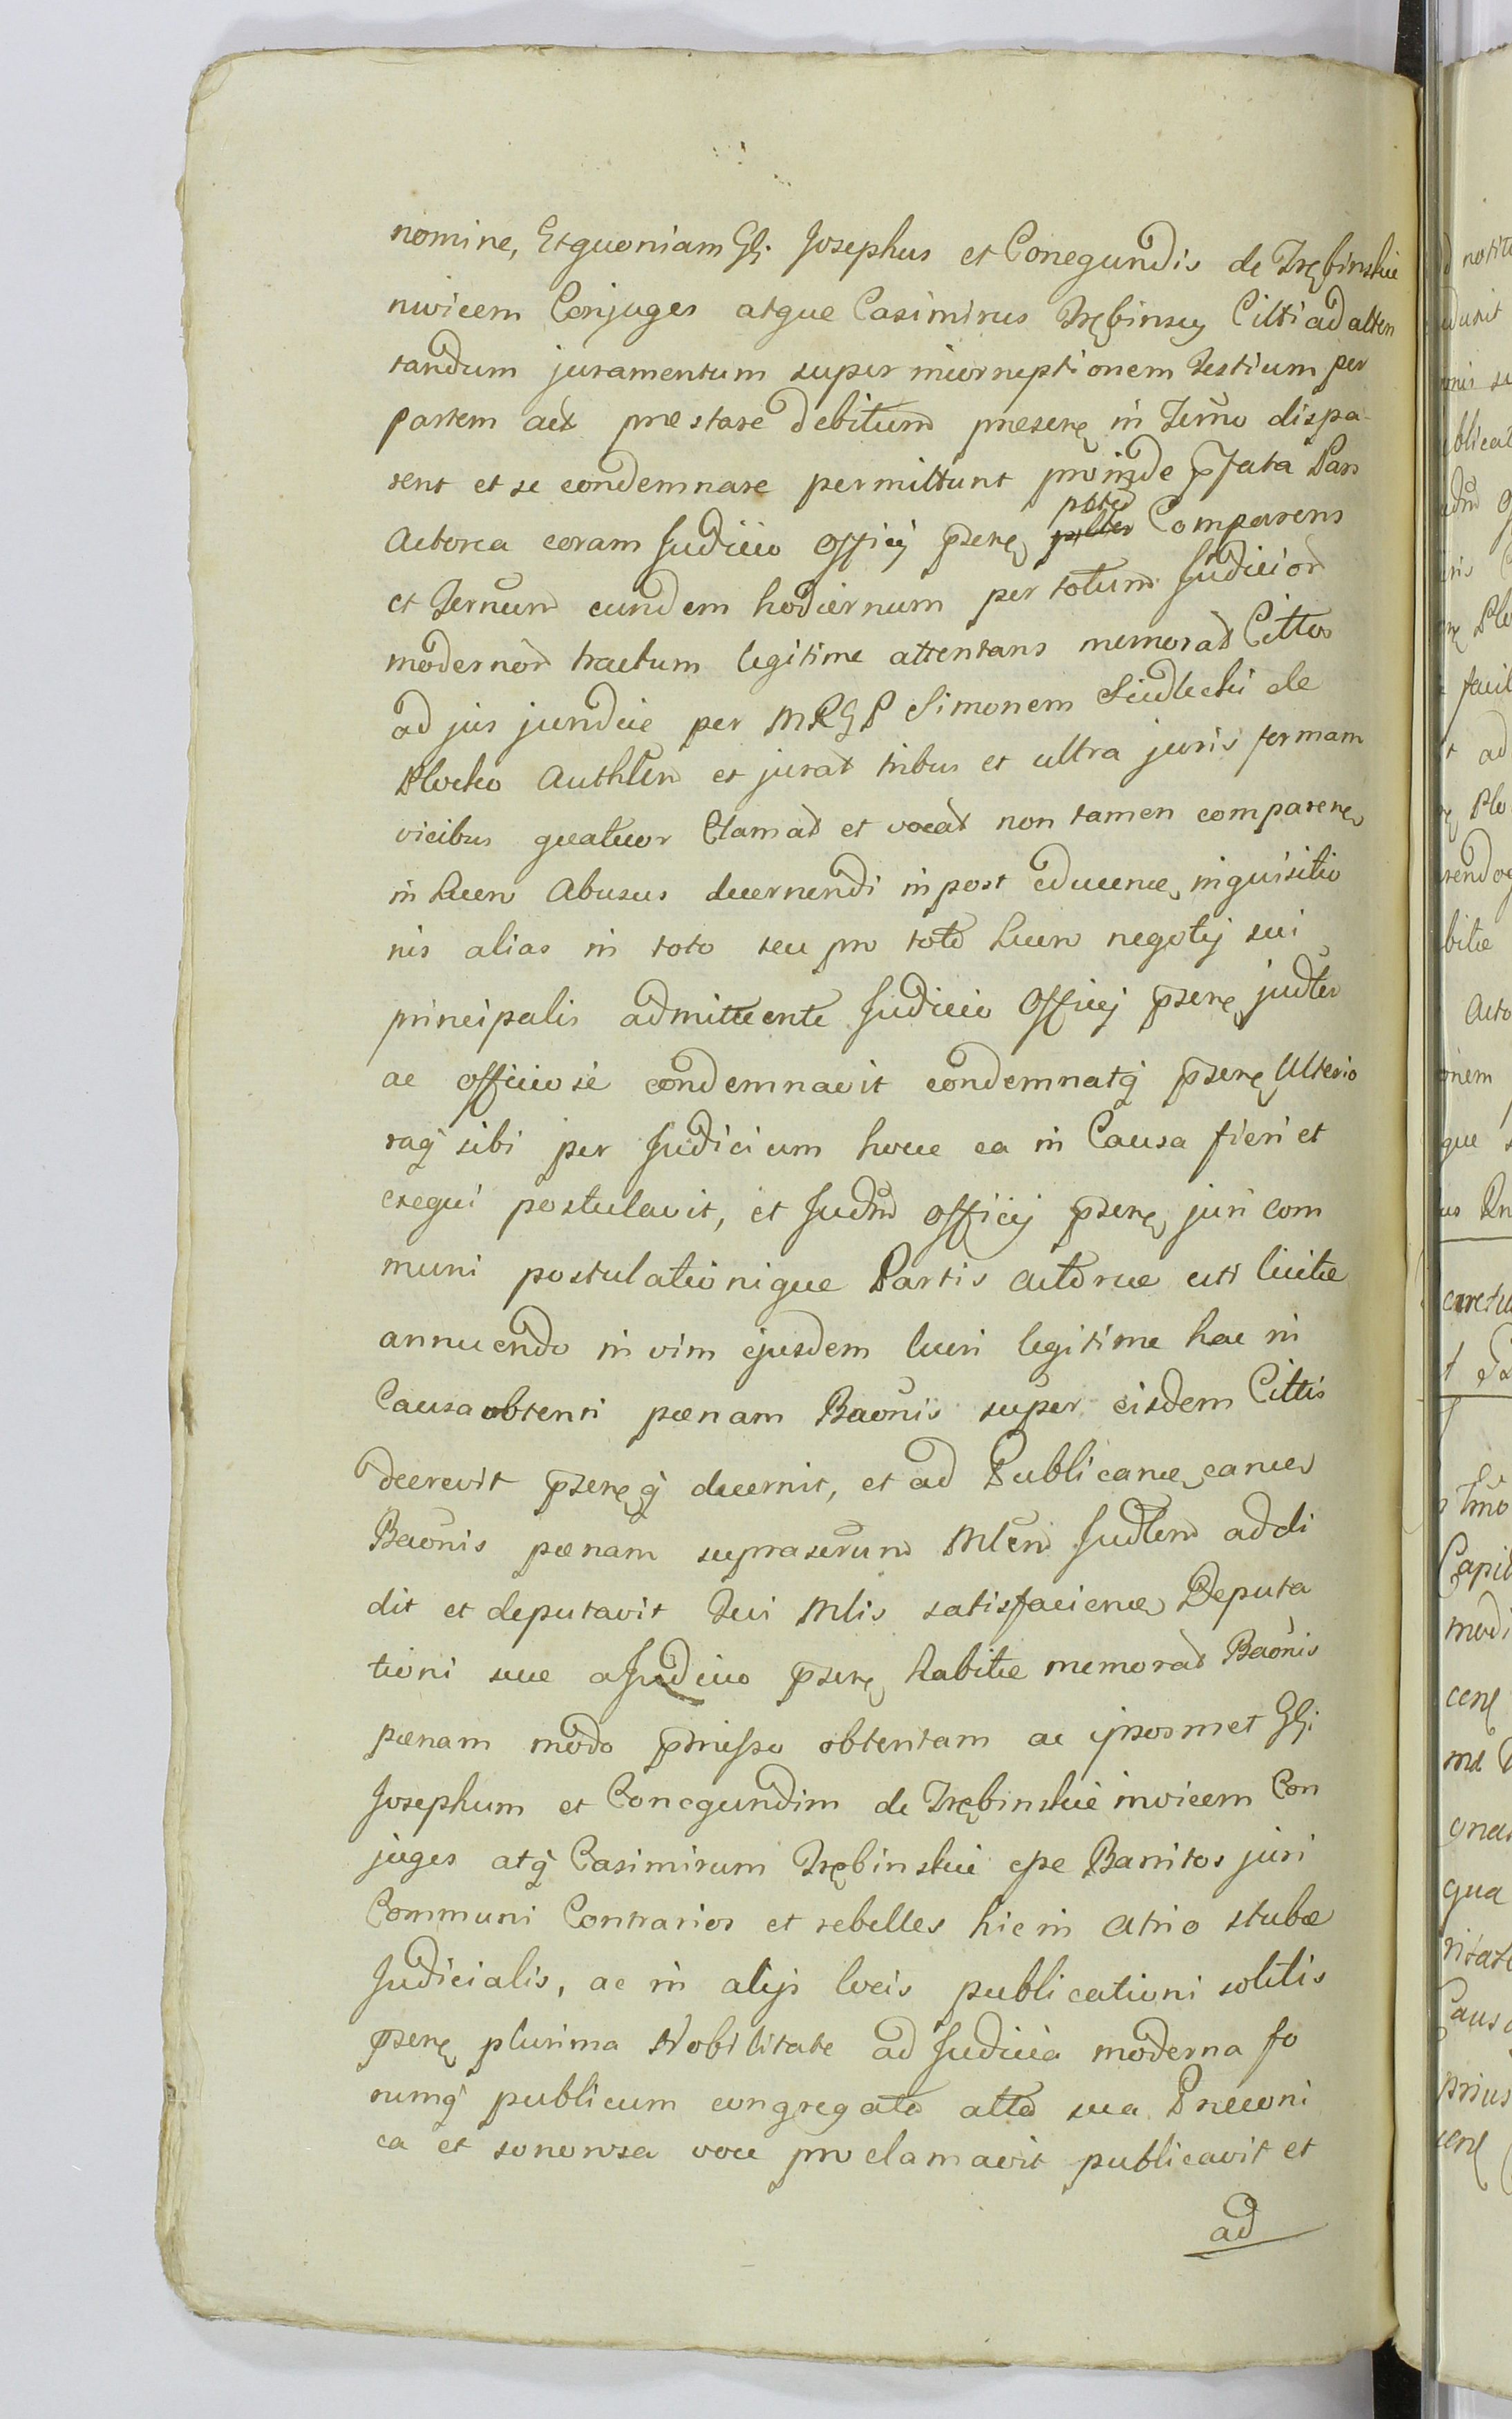 nomine, Etquoniam Gsi Josephus et Conegundis de Trębinskie
nvicem Conjuges atque Casimirus Trębinscy Citti ad atten
tandum juramentum super incorruptionem Testium per
partem act præstare debitum præsenę in Termo dispa-
rent et se condemnare permittunt proinde pfata Pars
Actorea coram Judicio Officij psenę personal Comparens
et Ternum eundem hodiernum per totum Judicior
modernor tractum legitime attentans memorat Cittos
ad jus jundcie per MRGP Simonem Siedlecki de
Plocko Authten et jurat tribus et ultra juris formam
vicibus quatuor Clamat et vocat non tamen comparenę
in Lucro Abusus decernendi inpost educenę inquisitio
nis alias in toto seu pro toto Lucro negotij sui
principalis admittente Judicio Officij psenę judter
ac officiose condemnavit condemnatq psenę Ulterio
raq sibi per Judicium hocce ea in Causa fieri et
exequi postulavit, et Judm officij psenę juri com
muni postulationique Partis actoreæ uti licitæ
annuendo in vim ejusdem lucri legitime hac in
Causa obtenti pœnam Baonis super eisdem Cittis
decrevit psenęq decernit, et ad Publicanę eanę
Baonis pœnam suprascrum Mlem Judlem addi
dit et deputavit Qui Mlis satisfacienę Deputa
tioni suæ a Judicio psenę habitæ memorat Baonis
pœnam modo pmisso obtentam ac ipsosmet Gsi
Josephum et Conegundim de Trębinskie invicem Con
juges atq Casimirum Trębinskie esse Banitos juri
Communi Contrarios et rebelles hic in Atrio stubæ
Judicialis, ac in alijs locis publicationi solitis
psenę plurima Nobilitate ad Judicia moderna fo
rumq publicum congregata alta sua Præconi
ca et sonorosa voce proclamavit publicavit et
ad